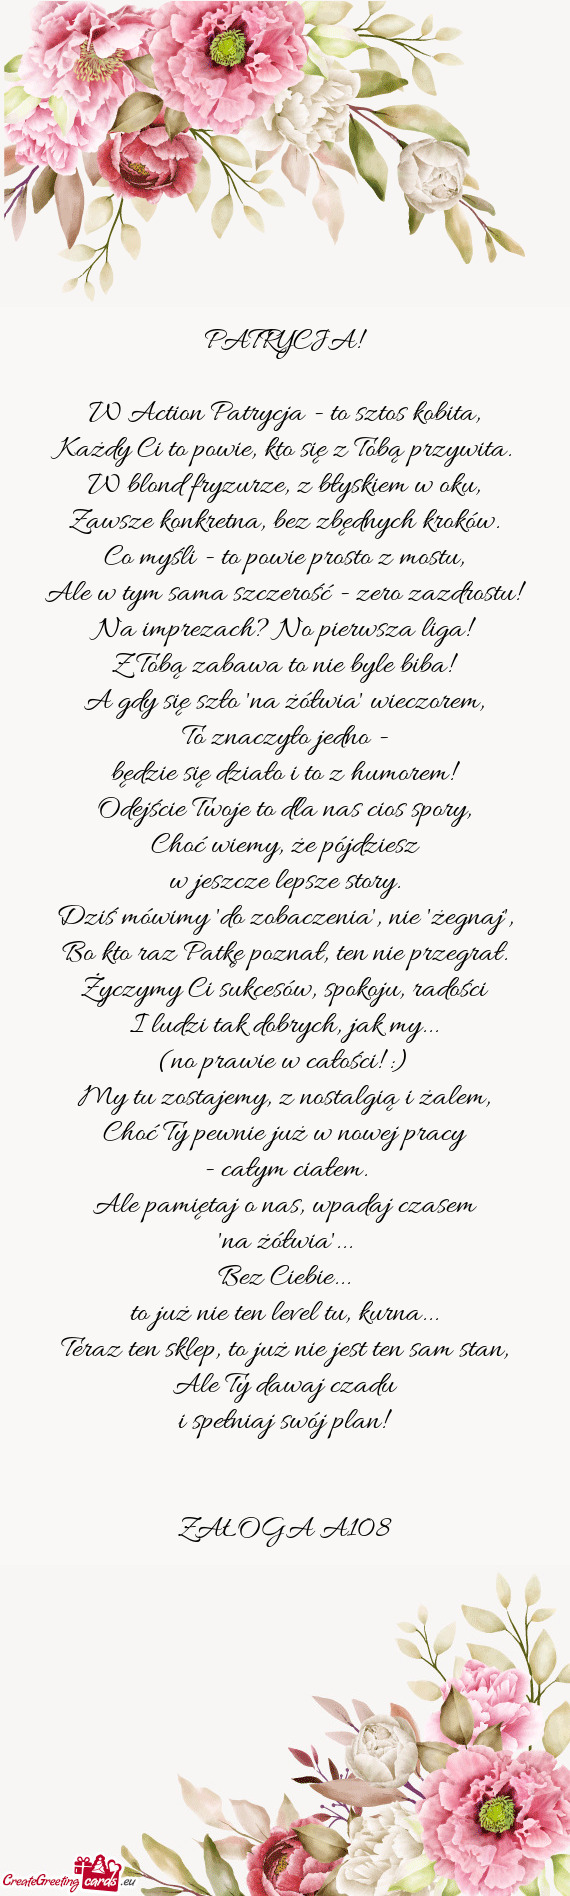 PATRYCJA!
W Action Patrycja - to sztos kobita,
Każdy Ci to powie, kto się z Tobą przywita.
W blond fryzurze, z błyskiem w oku,
Zawsze konkretna, bez zbędnych kroków.
Co myśli - to powie prosto z mostu,
Ale w tym sama szczerość - zero zazdrostu!
Na imprezach? No pierwsza liga!
Z Tobą zabawa to nie byle biba!
A gdy się szło 'na żółwia' wieczorem,
To znaczyło jedno -
będzie się działo i to z humorem!
Odejście Twoje to dla nas cios spory,
Choć wiemy, że pójdziesz
w jeszcze lepsze story.
Dziś mówimy 'do zobaczenia', nie 'żegnaj',
Bo kto raz Patkę poznał, ten nie przegrał.
Życzymy Ci sukcesów, spokoju, radości
I ludzi tak dobrych, jak my...
(no prawie w całości! :)
My tu zostajemy, z nostalgią i żalem,
Choć Ty pewnie już w nowej pracy
- całym ciałem.
Ale pamiętaj o nas, wpadaj czasem
'na żółwia'...
Bez Ciebie...
to już nie ten level tu, kurna...
Teraz ten sklep, to już nie jest ten sam stan,
Ale Ty dawaj czadu
i spełniaj swój plan!
ZAŁOGA A108
CreateGreeting cards .eu